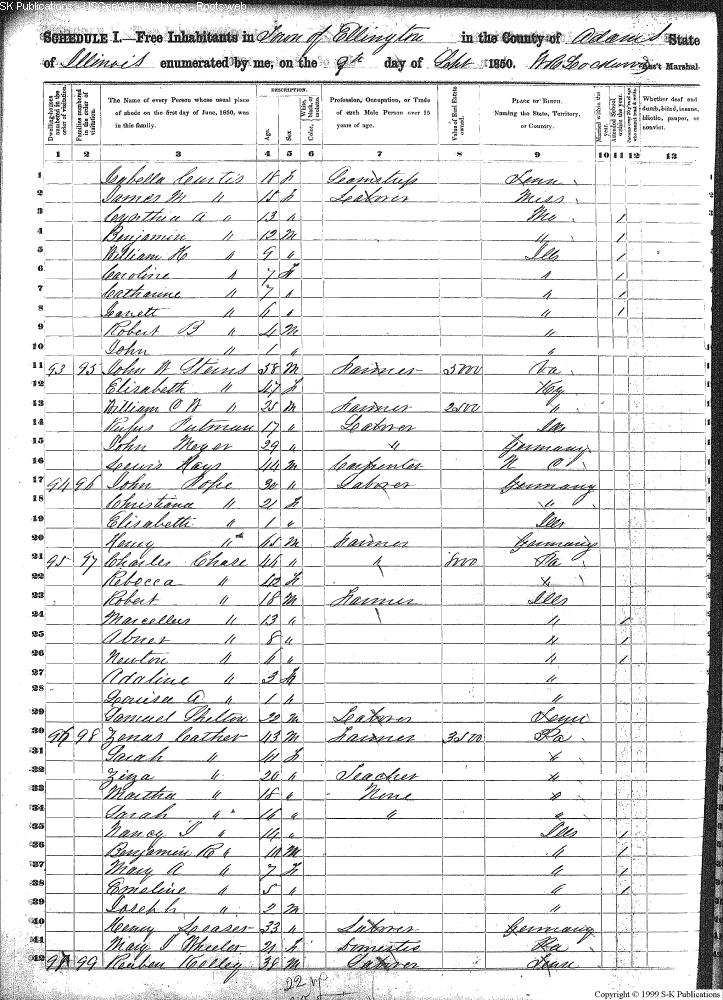 SK Publications - USGenWeb Archives - Rootsweb
SCHEDULE I.—Free Inhabitants in Town of Ellington in the County of Adams State
of Illinois enumerated by me, on the 9th day of Sept 1850. Ass't Marshal.
DESCRIPTION.
Dwelling-houses numbered in the order of visitation. Families numbered in the order of visitation. The Name of every Person whose usual place of abode on the first day of June, 1850, was in this family. Age. Sex. Color, White, black, or mulatto. Profession, Occupation, or Trade of each Male Person over 15 years of age. Value of Real Estate owned. PLACE OF BIRTH. Naming the State, Territory, or Country. Married within the year. Attended School within the year. Persons over 20 y'rs of age who cannot read & write. Whether deaf and dumb, blind, insane, idiotic, pauper, or convict.
1 2 3 4 5 6 7 8 9 10 11 12 13
1 Isabella Curtis 18 f Tenn
2 James M " 15 f Laborer Miss
3 Cynthia A " 13 " Mo 1
4 Benjamin " 12 M " 1
5 William H " 9 " Ills 1
6 Caroline " 7 f " 1
7 Catharine " 7 " " 1
8 " 6 " " 1
9 Robert B " 4 M "
10 John " 1 " "
11 93 95 John W 58 M Farmer 5000 Va
12 Elisabeth " 47 f Ky
13 William C W " 25 M Farmer 2500 "
14 Rufus Putman 17 " Laborer Ills
15 John Meyer 29 " " Germany
16 Lewis Hays 44 M Carpenter N C
17 94 96 John Pope 30 " Laborer Germany
18 Christiana " 21 f "
19 Elisabeth " 1 " Ills
20 Henry " 65 M Farmer Germany
21 95 97 Charles Chase 46 " " 8000 Pa
22 Rebecca " 42 f "
23 Robert " 18 M Farmer Ills
24 Marcellus " 13 " " 1
25 Abner " 8 " " 1
26 Newton " 6 " " 1
27 Adaline " 3 f "
28 Louisa A " 1 " "
29 Samuel Shelton 22 M Laborer Tenn
30 96 98 Zenas Cather 43 M Farmer 3500 Pa
31 Sarah " 41 f "
32 Ziza " 20 " Teacher "
33 Martha " 18 " None "
34 Sarah " 16 " " "
35 Nancy J " 14 " Ills 1
36 Benjamin R " 10 M " 1
37 Mary A " 7 f " 1
38 Emeline " 5 " " 1
39 Joseph " 2 M "
40 Henry Leaser 33 " Laborer Germany
41 Mary J Wheeler 21 f Domestic Pa
42 97 99 Reuben Kelley 38 M Laborer Tenn
22
Copyright © 1999 S-K Publications